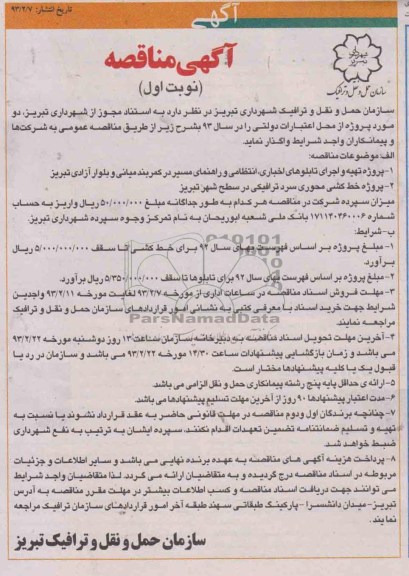 آگهی
تاریخ انتشار: ۹۳/۲/۷
آگهی مناقصه
(نوبت اول)
شهرداری تبریز
سازمان حمل و نقل و ترافیک
سازمان حمل و نقل و ترافیک شهرداری تبریز در نظر دارد به استناد مجوز از شهرداری تبریز، دو
مورد پروژه از محل اعتبارات دولتی را در سال ۹۳ بشرح زیر از طریق مناقصه عمومی به شرکت‌ها
و پیمانکاران واجد شرایط واگذار نماید.
الف موضوعات مناقصه:
۱- پروژه تهیه و اجرای تابلوهای اخباری، انتظامی و راهنمای مسیر در کمربند میانی و بلوار آزادی تبریز
۲- پروژه خط کشی محوری سرد ترافیکی در سطح شهر تبریز
میزان سپرده شرکت در مناقصه هر کدام به طور جداگانه مبلغ ۵۰/۰۰۰/۰۰۰ ریال واریز به حساب
شماره ۱۷۱۱۴۰۳۶۰۰۰۶ بانک ملی شعبه ابوریحان به نام تمرکز وجوه سپرده شهرداری تبریز.
ب- شرایط:
۱- مبلغ پروژه بر اساس فهرست بهای سال ۹۲ برای خط کشی تا سقف ۵/۰۰۰/۰۰۰/۰۰۰ ریال
برآورد.
۲- مبلغ پروژه بر اساس فهرست بهای سال ۹۲ برای تابلوها تا سقف ۵/۳۵۰/۰۰۰/۰۰۰ ریال برآورد.
۳- مهلت فروش اسناد مناقصه در ساعات اداری از مورخه ۹۳/۲/۷ لغایت مورخه ۹۳/۲/۱۱ واجدین
شرایط جهت خرید اسناد با معرفی کتبی به نشانی امور قراردادهای سازمان حمل و نقل و ترافیک
مراجعه نمایند
۴- آخرین مهلت تحویل اسناد مناقصه به دبیرخانه سازمان ساعت ۱۳ روز دوشنبه مورخه ۹۳/۲/۲۲
می باشد و زمان بازگشایی پیشنهادات ساعت ۱۴/۳۰ مورخه ۹۳/۲/۲۲ می باشد و سازمان در رد یا
قبول یک یا کلیه پیشنهادها مختار است.
۵- ارائه ی حداقل پایه پنج رشته پیمانکاری حمل و نقل الزامی می باشد.
۶- مدت اعتبار پیشنهادها ۹۰ روز از آخرین مهلت تسلیم پیشنهادها می باشد.
۷- چنانچه برندگان اول و دوم مناقصه در مهلت قانونی حاضر به عقد قرارداد نشوند یا نسبت به
تهیه و تسلیم ضمانتنامه تضمین تعهدات اقدام نکنند، سپرده ایشان به ترتیب به نفع شهرداری
ضبط خواهد شد.
۸- پرداخت هزینه آگهی های مناقصه به عهده برنده نهایی می باشد و سایر اطلاعات و جزئیات
مربوطه در اسناد مناقصه درج گردیده و به متقاضیان ارائه می گردد. لذا متقاضیان واجد شرایط
می توانند جهت دریافت اسناد مناقصه و کسب اطلاعات بیشتر در مهلت مقرر مناقصه به آدرس
تبریز- میدان دانشسرا - پارکینگ طبقاتی سهند طبقه آخر امور قراردادهای سازمان ترافیک مراجعه
نمایند.
سازمان حمل و نقل و ترافیک تبریز
ParsNamadData